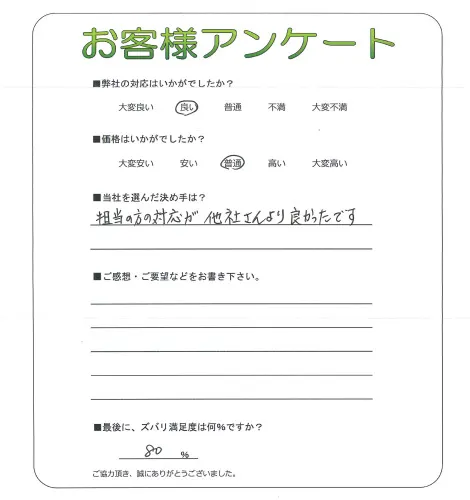 お客様アンケート
■弊社の対応はいかがでしたか？
大変良い 良い 普通 不満 大変不満
■価格はいかがでしたか？
大変安い 安い 普通 高い 大変高い
■当社を選んだ決め手は？
担当の方の対応が他社さんより良かったです
■ご感想・ご要望などをお書き下さい。
■最後に、ズバリ満足度は何％ですか？
80 ％
ご協力頂き、誠にありがとうございました。